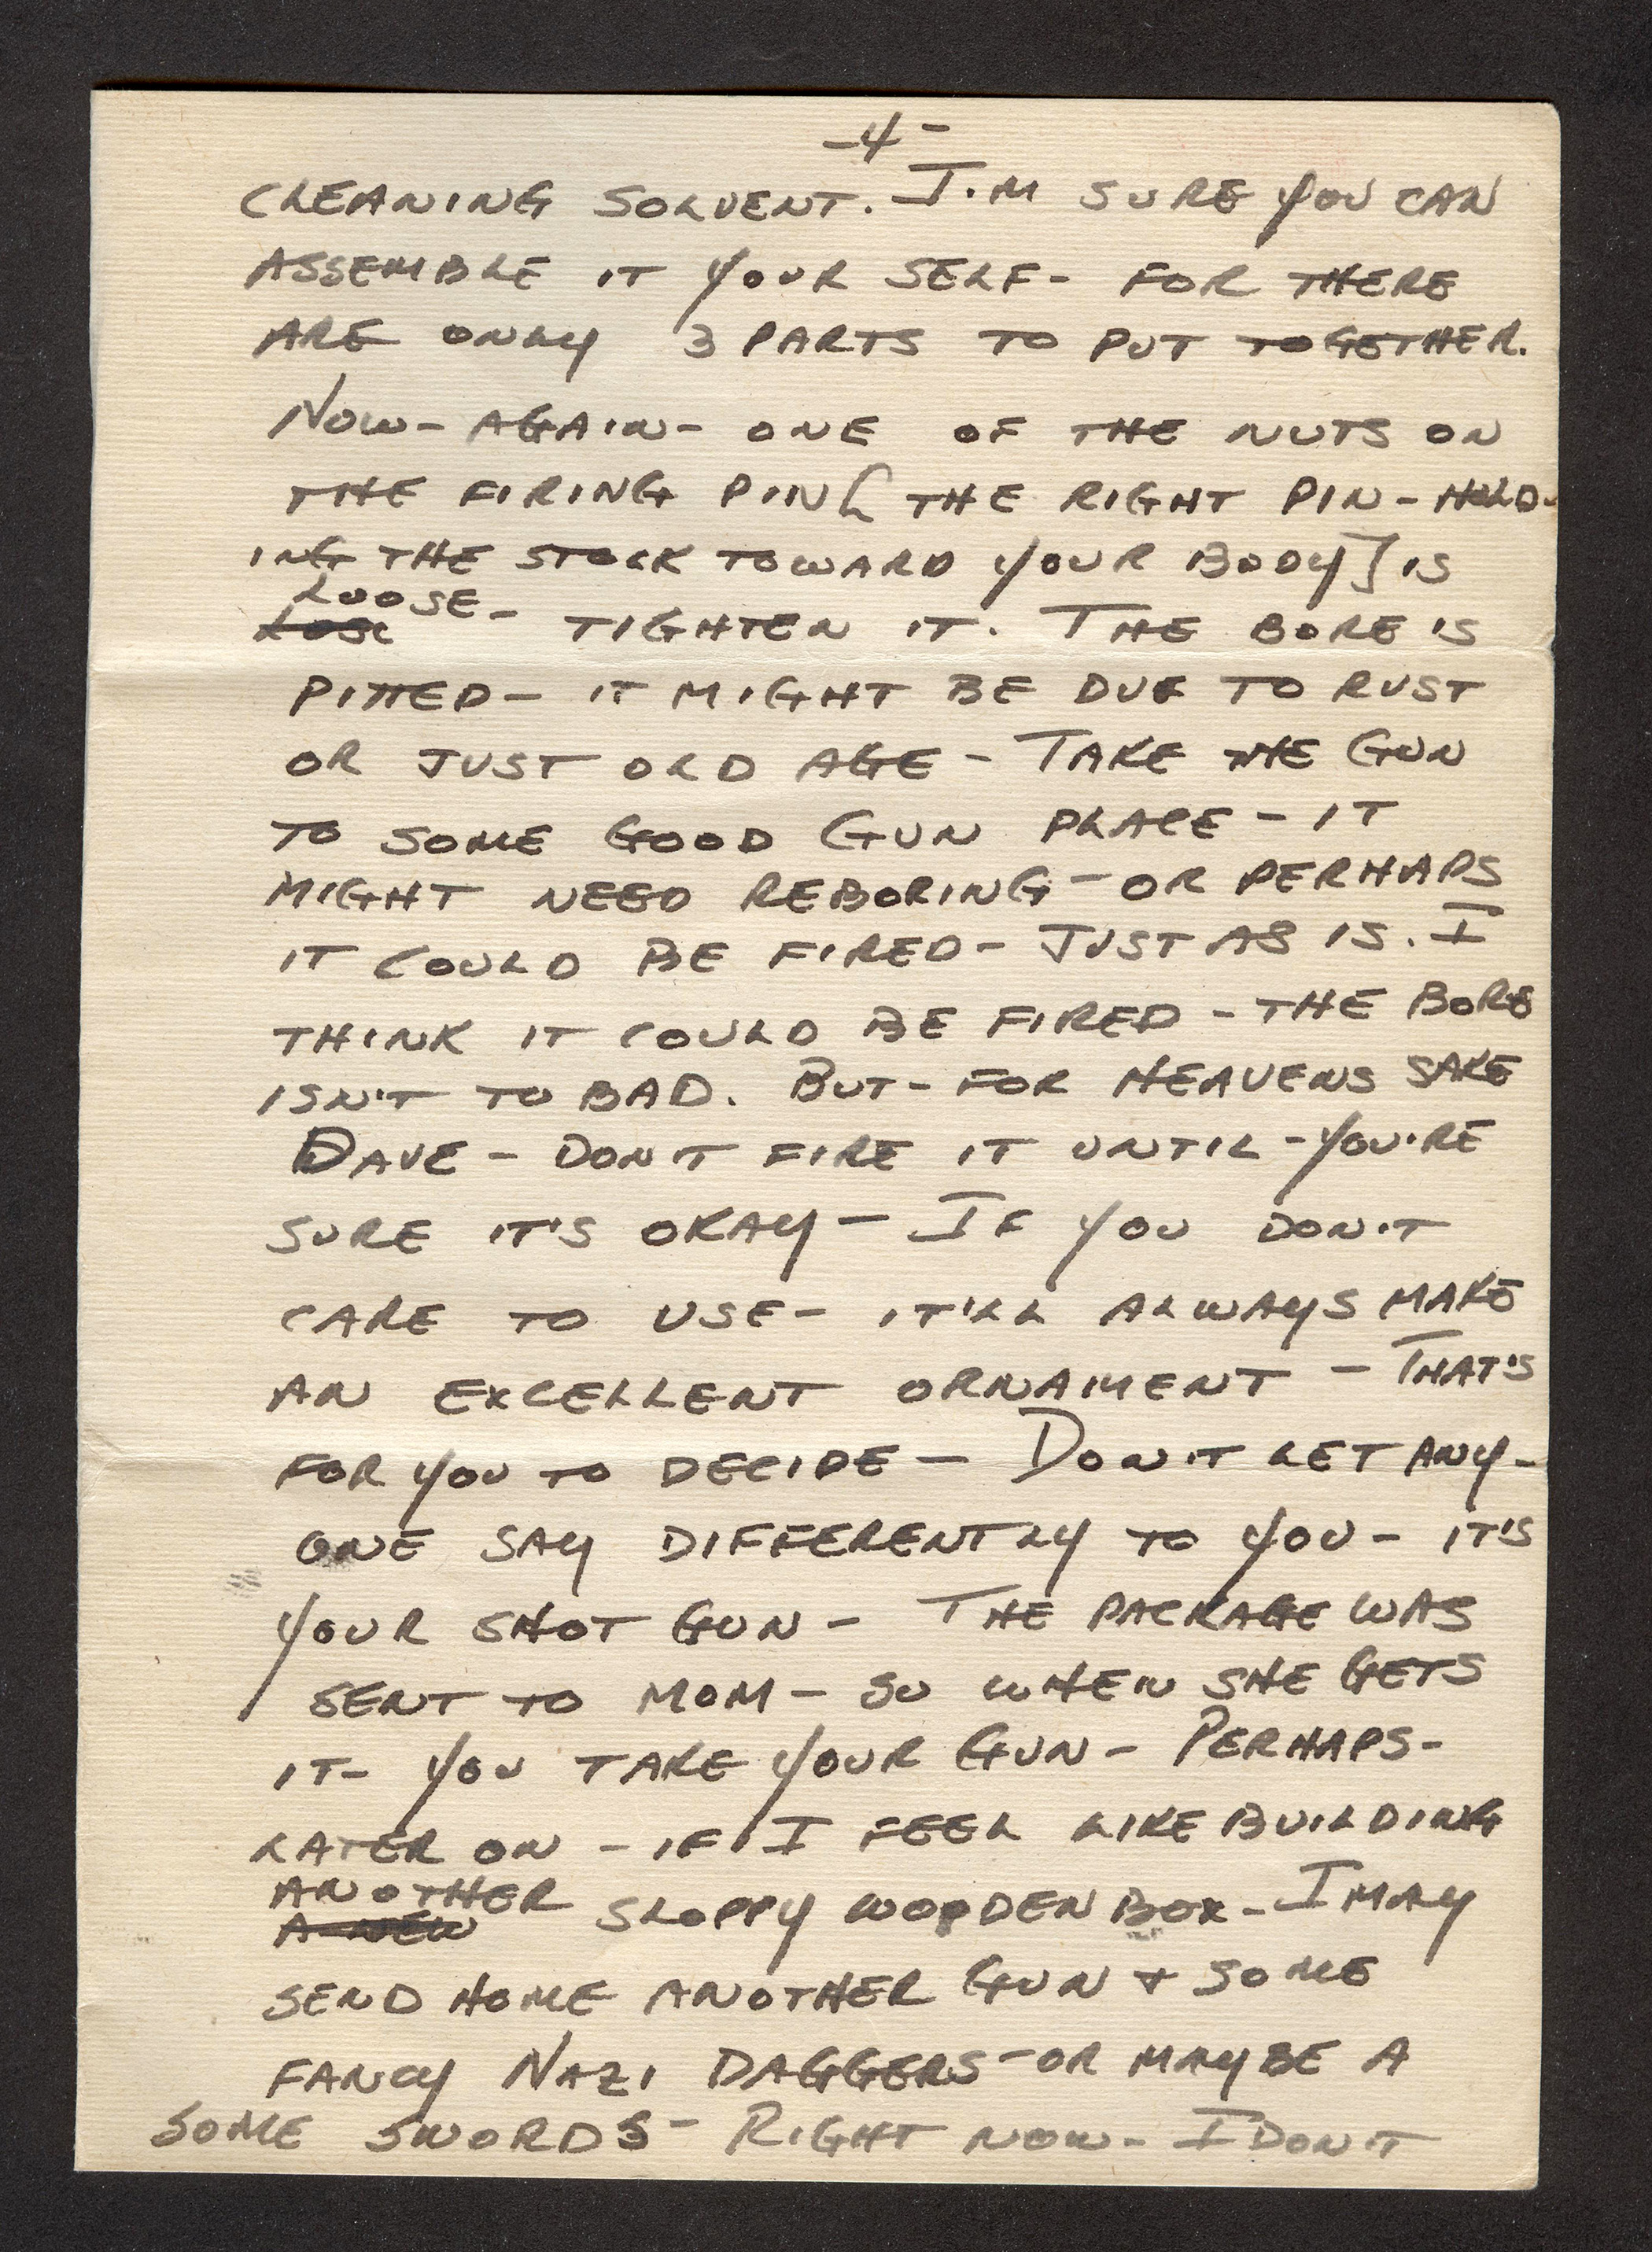 -4-
CLEANING SOLVENT. I'M SURE YOU CAN
ASSEMBLE IT YOUR SELF- FOR THERE
ARE ONLY 3 PARTS TO PUT TOGETHER.
NOW- AGAIN- ONE OF THE NUTS ON
THE FIRING PIN [ THE RIGHT PIN - HOLD-
ING THE STOCK TOWARD YOUR BODY] IS
LOOSE-
LOSE TIGHTEN IT. THE BORE IS
PITTED- IT MIGHT BE DUE TO RUST
OR JUST OLD AGE - TAKE THE GUN
TO SOME GOOD GUN PLACE - IT
MIGHT NEED REBORING - OR PERHAPS
IT COULD BE FIRED- JUST AS IS. I
THINK IT COULD BE FIRED - THE BORE
ISN'T TO BAD. BUT- FOR HEAVENS SAKE
DAVE - DON'T FIRE IT UNTIL - YOU'RE
SURE IT'S OKAY - IF YOU DON'T
CARE TO USE- IT'LL ALWAYS MAKE
AN EXCELLENT ORNAMENT - THAT'S
FOR YOU TO DECIDE - DON'T LET ANY-
ONE SAY DIFFERENTLY TO YOU - IT'S
YOUR SHOT GUN - THE PACKAGE WAS
SENT TO MOM - SO WHEN SHE GETS
IT- YOU TAKE YOUR GUN - PERHAPS-
LATER ON - IF I FEEL LIKE BUILDING
ANOTHER
A NEW SLOPPY WOODEN BOX - I MAY
SEND HOME ANOTHER GUN + SOME
FANCY NAZI DAGGERS - OR MAYBE A
SOME SWORDS - RIGHT NOW - I DON'T